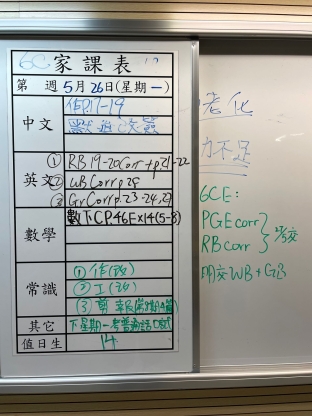 6C 家課表
第 週 5月26日(星期一)
中文
作P.17-19
默
英文
① RB 19-20Corr + p.21-22
② WB Corr p.28
③ Gr Corr p.23-24,27
數學
數下C P.46 Ex14(5-8)
常識
① 作(改)
② 工(改)
③ 剪報
其它
下星期一考普通話
值日生
14
老化
力不足
6CE:
PGE corr
RB corr
明交WB + GB